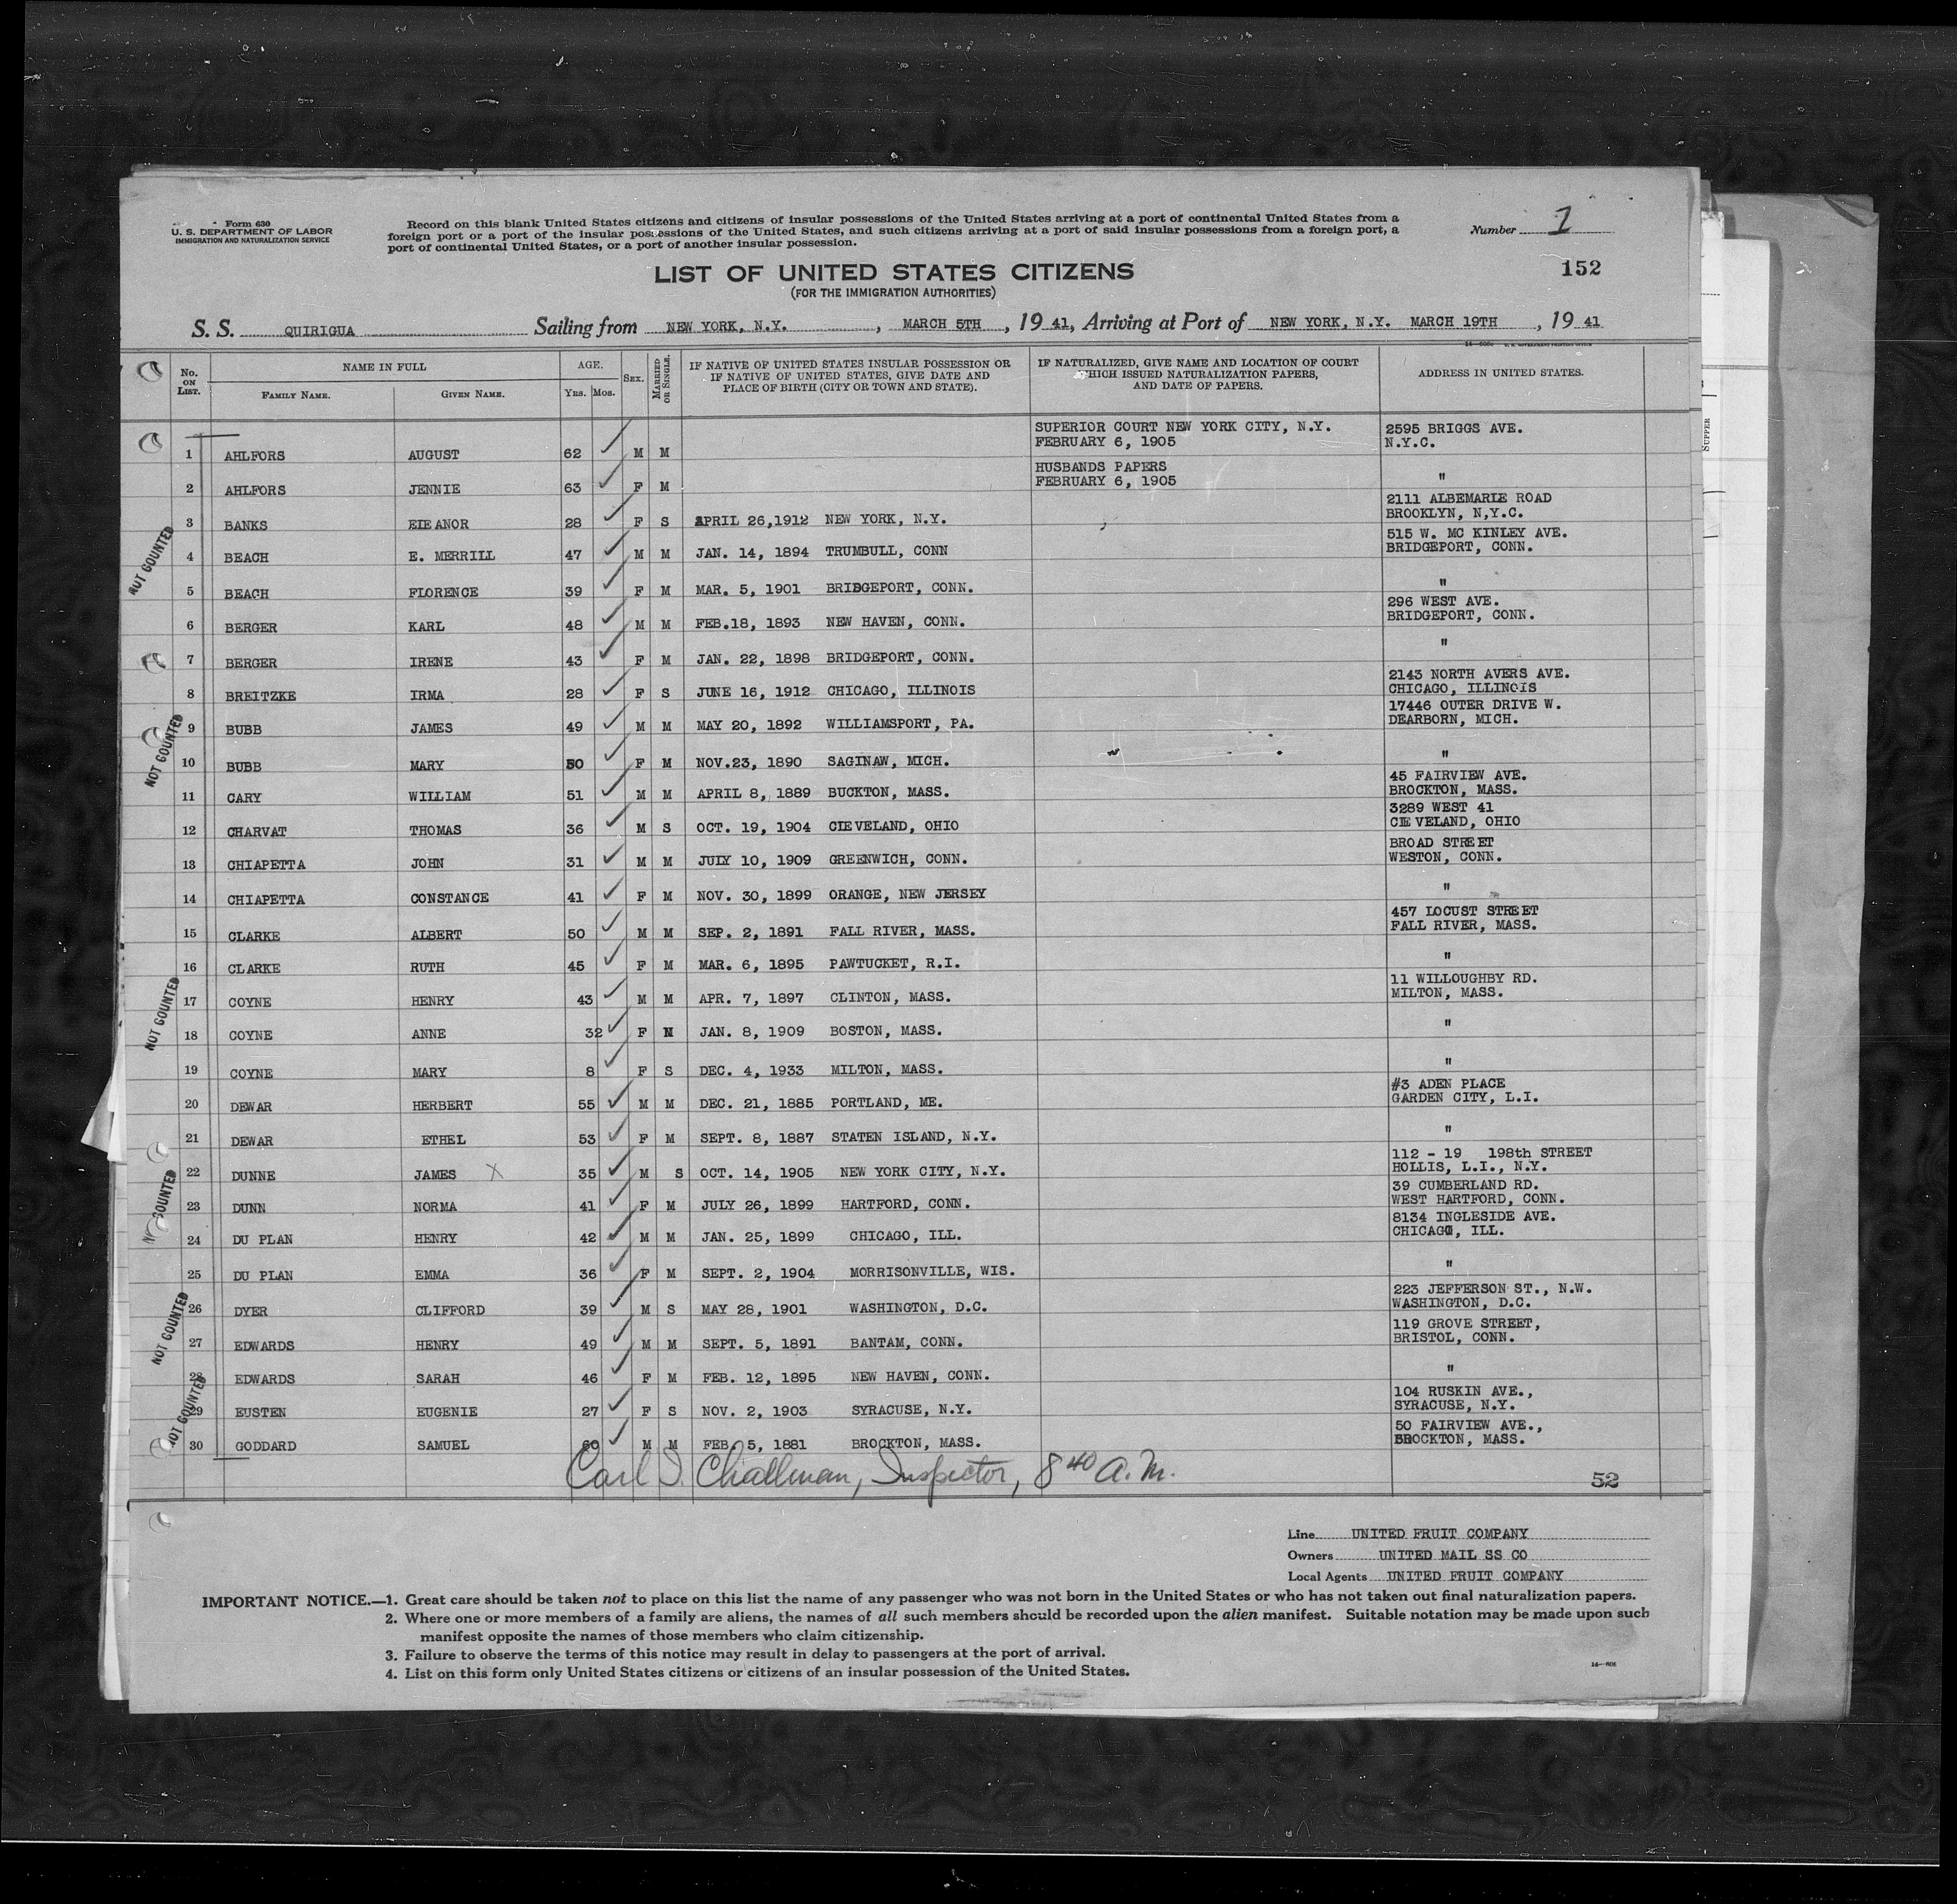 Form 630
U. S. DEPARTMENT OF LABOR
IMMIGRATION AND NATURALIZATION SERVICE
Record on this blank United States citizens and citizens of insular possessions of the United States arriving at a port of continental United States from a
foreign port or a port of the insular possessions of the United States, and such citizens arriving at a port of said insular possessions from a foreign port, a
port of continental United States, or a port of another insular possession.
Number 1
152
LIST OF UNITED STATES CITIZENS
(FOR THE IMMIGRATION AUTHORITIES)
S. S. QUIRIGUA Sailing from NEW YORK, N.Y. , MARCH 5TH , 19 41, Arriving at Port of NEW YORK, N.Y. MARCH 19TH , 19 41
No. ON LIST. NAME IN FULL FAMILY NAME. GIVEN NAME. AGE. YRS. MOS. SEX. MARRIED OR SINGLE. IF NATIVE OF UNITED STATES INSULAR POSSESSION OR IF NATIVE OF UNITED STATES, GIVE DATE AND PLACE OF BIRTH (CITY OR TOWN AND STATE). IF NATURALIZED, GIVE NAME AND LOCATION OF COURT WHICH ISSUED NATURALIZATION PAPERS, AND DATE OF PAPERS. ADDRESS IN UNITED STATES.
SUPPER
1 AHLFORS AUGUST 62 M M SUPERIOR COURT NEW YORK CITY, N.Y. FEBRUARY 6, 1905 2595 BRIGGS AVE. N.Y.C.
2 AHLFORS JENNIE 63 F M HUSBANDS PAPERS FEBRUARY 6, 1905 "
3 BANKS EIEANOR 28 F S APRIL 26,1912 NEW YORK, N.Y. 2111 ALBEMARIE ROAD BROOKLYN, N,Y.C.
NOT COUNTED
4 BEACH E. MERRILL 47 M M JAN. 14, 1894 TRUMBULL, CONN 515 W. MC KINLEY AVE. BRIDGEPORT, CONN.
5 BEACH FLORENCE 39 F M MAR. 5, 1901 BRIDGEPORT, CONN. "
6 BERGER KARL 48 M M FEB.18, 1893 NEW HAVEN, CONN. 296 WEST AVE. BRIDGEPORT, CONN.
7 BERGER IRENE 43 F M JAN. 22, 1898 BRIDGEPORT, CONN. "
8 BREITZKE IRMA 28 F S JUNE 16, 1912 CHICAGO, ILLINOIS 2143 NORTH AVERS AVE. CHICAGO, ILLINOIS
NOT COUNTED
9 BUBB JAMES 49 M M MAY 20, 1892 WILLIAMSPORT, PA. 17446 OUTER DRIVE W. DEARBORN, MICH.
10 BUBB MARY 50 F M NOV.23, 1890 SAGINAW, MICH. "
11 CARY WILLIAM 51 M M APRIL 8, 1889 BUCKTON, MASS. 45 FAIRVIEW AVE. BROCKTON, MASS.
12 CHARVAT THOMAS 36 M S OCT. 19, 1904 CIEVELAND, OHIO 3289 WEST 41 CIEVELAND, OHIO
13 CHIAPETTA JOHN 31 M M JULY 10, 1909 GREENWICH, CONN. BROAD STREET WESTON, CONN.
14 CHIAPETTA CONSTANCE 41 F M NOV. 30, 1899 ORANGE, NEW JERSEY "
15 CLARKE ALBERT 50 M M SEP. 2, 1891 FALL RIVER, MASS. 457 LOCUST STREET FALL RIVER, MASS.
16 CLARKE RUTH 45 F M MAR. 6, 1895 PAWTUCKET, R.I. "
NOT COUNTED
17 COYNE HENRY 43 M M APR. 7, 1897 CLINTON, MASS. 11 WILLOUGHBY RD. MILTON, MASS.
18 COYNE ANNE 32 F M JAN. 8, 1909 BOSTON, MASS. "
19 COYNE MARY 8 F S DEC. 4, 1933 MILTON, MASS. "
20 DEWAR HERBERT 55 M M DEC. 21, 1885 PORTLAND, ME. #3 ADEN PLACE GARDEN CITY, L.I.
21 DEWAR ETHEL 53 F M SEPT. 8, 1887 STATEN ISLAND, N.Y. "
22 DUNNE JAMES X 35 M S OCT. 14, 1905 NEW YORK CITY, N.Y. 112 - 19 198th STREET HOLLIS, L.I., N.Y.
NOT COUNTED
23 DUNN NORMA 41 F M JULY 26, 1899 HARTFORD, CONN. 39 CUMBERLAND RD. WEST HARTFORD, CONN.
24 DU PLAN HENRY 42 M M JAN. 25, 1899 CHICAGO, ILL. 8134 INGLESIDE AVE. CHICAGO, ILL.
25 DU PLAN EMMA 36 F M SEPT. 2, 1904 MORRISONVILLE, WIS. "
26 DYER CLIFFORD 39 M S MAY 28, 1901 WASHINGTON, D.C. 223 JEFFERSON ST., N.W. WASHINGTON, D.C.
NOT COUNTED
27 EDWARDS HENRY 49 M M SEPT. 5, 1891 BANTAM, CONN. 119 GROVE STREET, BRISTOL, CONN.
28 EDWARDS SARAH 46 F M FEB. 12, 1895 NEW HAVEN, CONN. "
NOT COUNTED
29 EUSTEN EUGENIE 27 F S NOV. 2, 1903 SYRACUSE, N.Y. 104 RUSKIN AVE., SYRACUSE, N.Y.
30 GODDARD SAMUEL 60 M M FEB. 5, 1881 BROCKTON, MASS. 50 FAIRVIEW AVE., BROCKTON, MASS.
Carl I. Challman, Inspector, 8 40 A.M.
52
Line UNITED FRUIT COMPANY
Owners UNITED MAIL SS CO
Local Agents UNITED FRUIT COMPANY
IMPORTANT NOTICE.—1. Great care should be taken not to place on this list the name of any passenger who was not born in the United States or who has not taken out final naturalization papers.
2. Where one or more members of a family are aliens, the names of all such members should be recorded upon the alien manifest. Suitable notation may be made upon such
manifest opposite the names of those members who claim citizenship.
3. Failure to observe the terms of this notice may result in delay to passengers at the port of arrival.
4. List on this form only United States citizens or citizens of an insular possession of the United States.